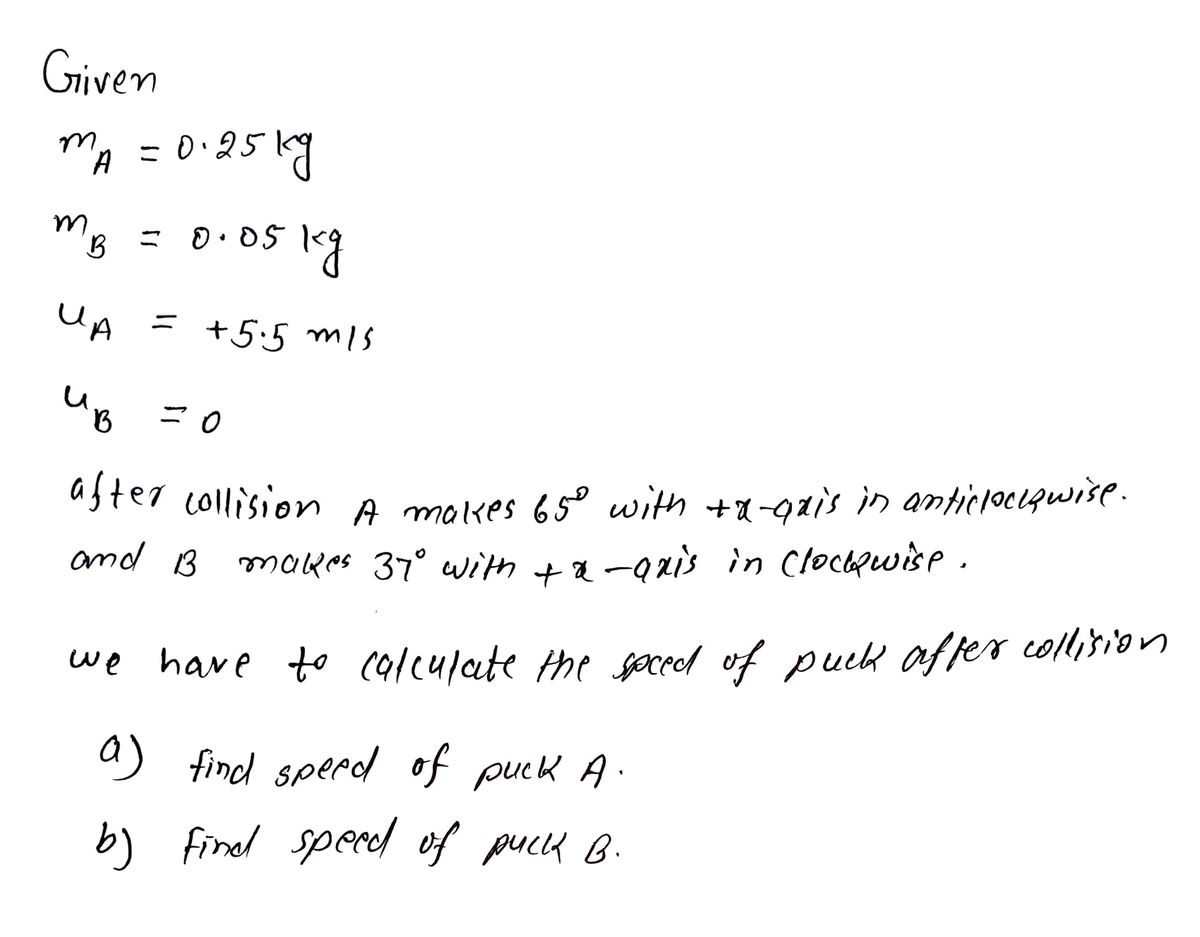 Given
m_A = 0.25 kg
m_B = 0.05 kg
u_A = +5.5 m/s
u_B = 0
after collision A makes 65° with +x-axis in anticlockwise.
and B makes 37° with +x-axis in clockwise.
we have to calculate the speed of puck after collision
a) find speed of puck A.
b) find speed of puck B.